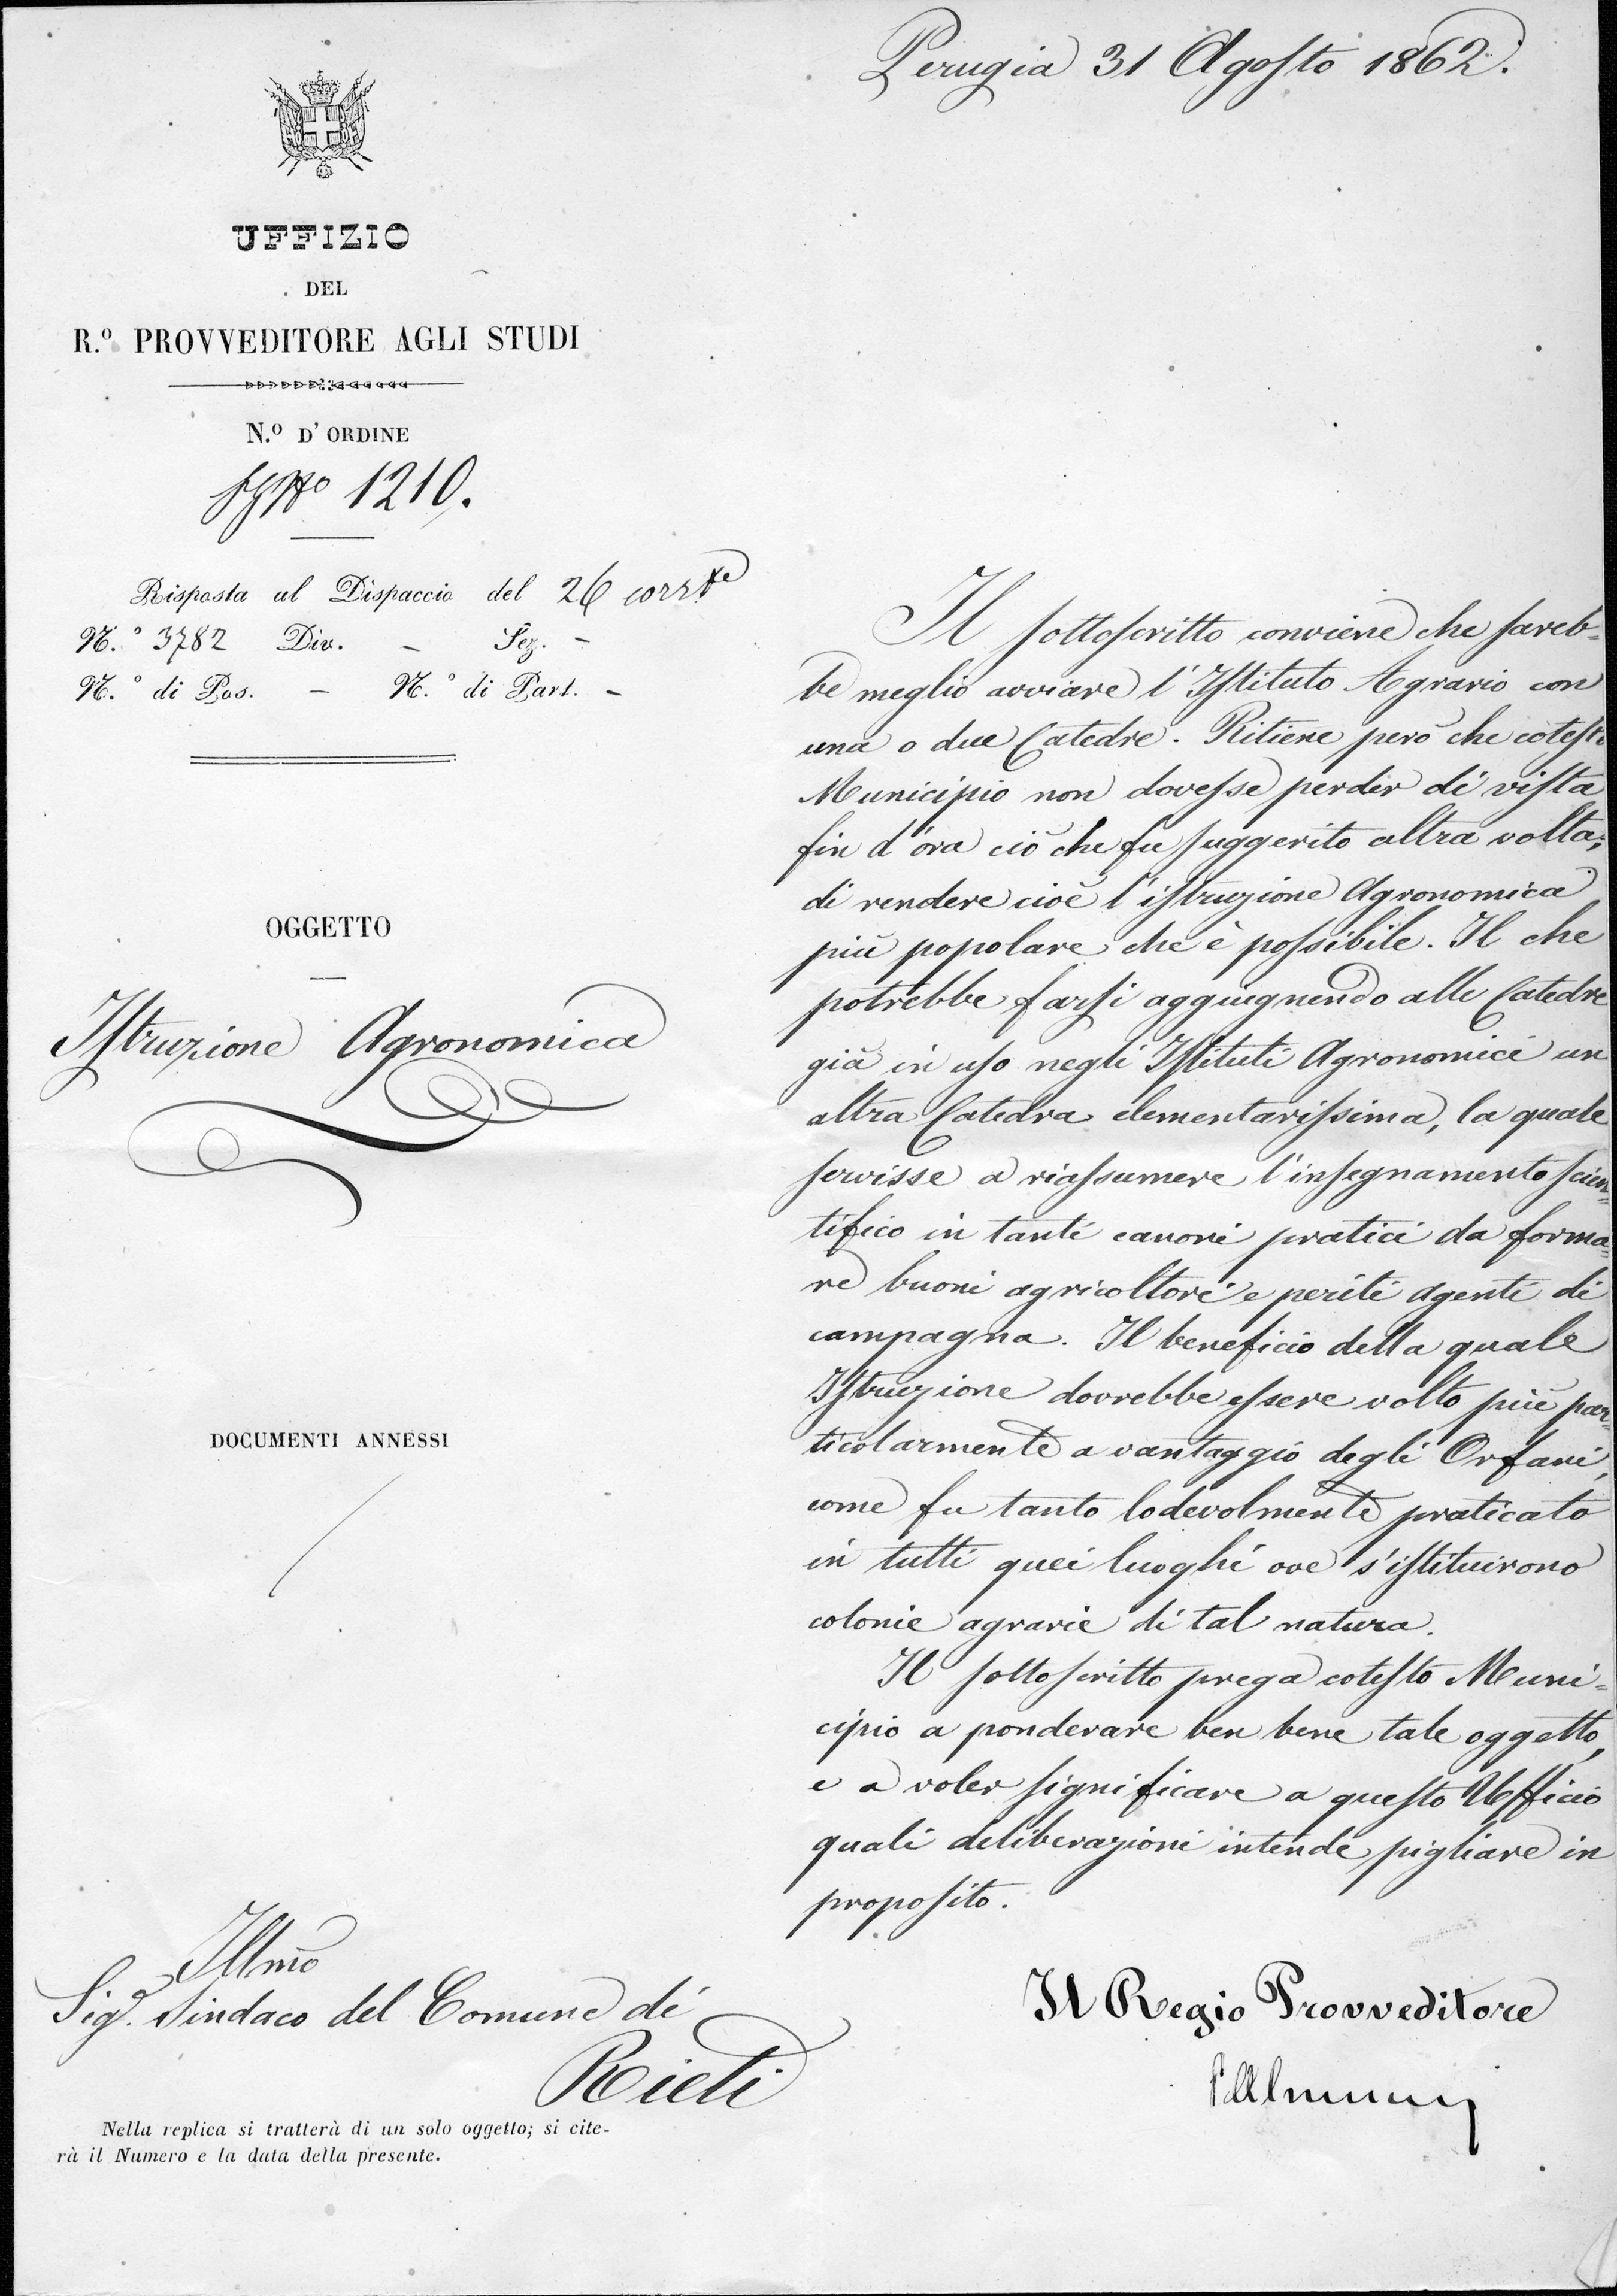 Perugia 31 Agosto 1862.
UFFIZIO
DEL
R.º PROVVEDITORE AGLI STUDI
N.º D'ORDINE
1210.
Risposta al Dispaccio del 26 corr.te
N.º 3782 Div. - Sez. -
N.º di Pos. - N.º di Part. -
OGGETTO
Istruzione Agronomica
DOCUMENTI ANNESSI
Il sottoscritto conviene che sareb=
be meglio avviare l'Istituto Agrario con
una o due Catedre. Ritiene però che cotesto
Municipio non dovesse perder di vista
fin d'ora ciò che fu suggerito altra volta,
di rendere cioè l'istruzione Agronomica
più popolare che è possibile. Il che
potrebbe farsi aggiugnendo alle Catedre
già in uso negli Istituti Agronomici un
altra Catedra elementarissima, la quale
servisse a riassumere l'insegnamento scien=
tifico in tanti canoni pratici da forma=
re buoni agricoltori e periti agenti di
campagna. Il beneficio della quale
Istruzione dovrebbe essere volto più par=
ticolarmente a vantaggio degli Orfani,
come fu tanto lodevolmente praticato
in tutti quei luoghi ove s'istituirono
colonie agrarie di tal natura.
Il sottoscritto prega cotesto Muni=
cipio a ponderare ben bene tale oggetto,
e a voler significare a questo Ufficio
quali deliberazioni intende pigliare in
proposito.
Il Regio Provveditore
Illmo
Sig.r Sindaco del Comune di
Rieti
Nella replica si tratterà di un solo oggetto; si cite-
rà il Numero e la data della presente.